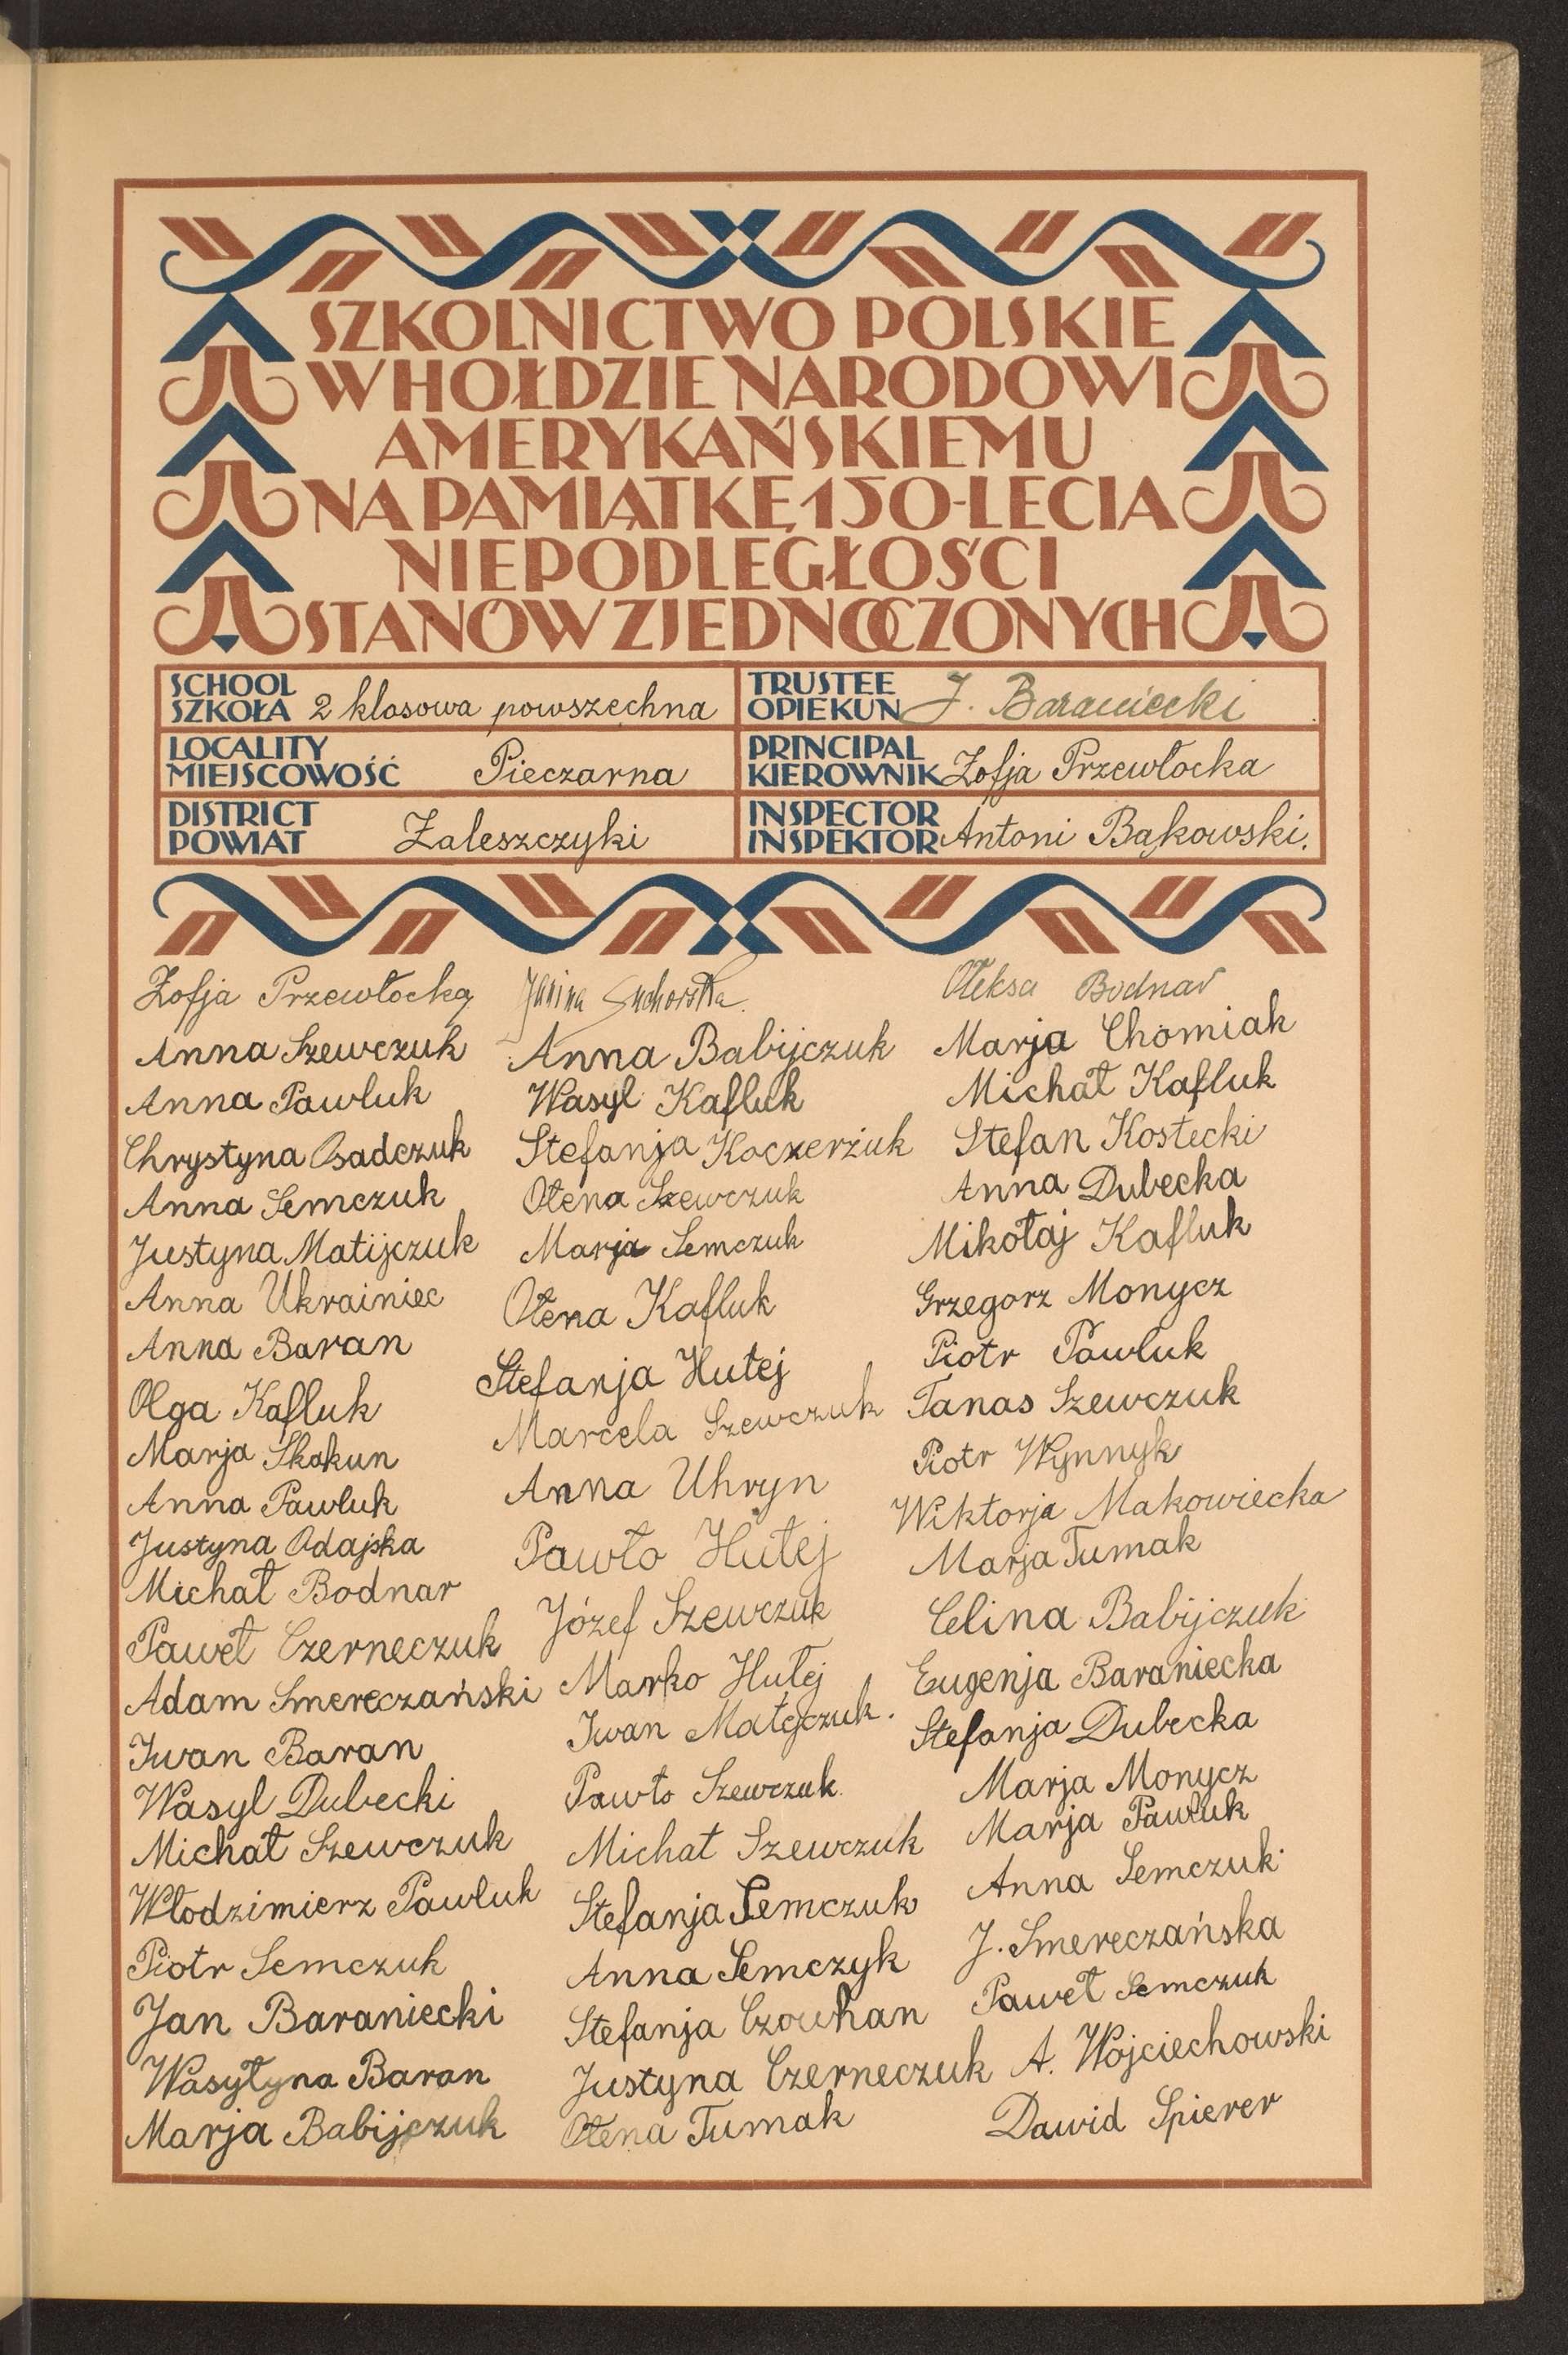 SZKOLNICTWO POLSKIE
W HOŁDZIE NARODOWI
AMERYKAŃSKIEMU
NA PAMIĄTKĘ 150-LECIA
NIEPODLEGŁOŚCI
STANÓW ZJEDNOCZONYCH
SCHOOL
SZKOŁA 2 klasowa powszechna
TRUSTEE
OPIEKUN J. Baraniecki
LOCALITY
MIEJSCOWOŚĆ Pieczarna
PRINCIPAL
KIEROWNIK Zofja Przewłocka
DISTRICT
POWIAT Zaleszczyki
INSPECTOR
INSPEKTOR Antoni Bąkowski.
Zofja Przewłocka
Anna Szewczuk
Anna Pawluk
Chrystyna Osadczuk
Anna Semczuk
Justyna Matijczuk
Anna Ukrainiec
Anna Baran
Olga Kafluk
Marja Skakun
Anna Pawluk
Justyna Odajska
Michał Bodnar
Paweł Czerneczuk
Adam Smereczański
Iwan Baran
Wasyl Dubecki
Michał Szewczuk
Włodzimierz Pawluk
Piotr Semczuk
Jan Baraniecki
Wasyłyna Baran
Marja Babijczuk
Janina Suchorska.
Anna Babijczuk
Wasyl Kafluk
Stefanja Koczerżuk
Ołena Szewczuk
Marja Semczuk
Ołena Kafluk
Stefanja Hutej
Marcela Szewczuk
Anna Uhryn
Pawło Hutej
Józef Szewczuk
Marko Hutej
Iwan Matejczuk.
Pawło Szewczuk.
Michał Szewczuk
Stefanja Semczuk
Anna Semczyk
Stefanja Czowhan
Justyna Czerneczuk
Ołena Tumak
Ołeksa Bodnar
Marja Chomiak
Michał Kafluk
Stefan Kostecki
Anna Dubecka
Mikołaj Kafluk
Grzegorz Monycz
Piotr Pawluk
Tanas Szewczuk
Piotr Wynnyk
Wiktorja Makowiecka
Marja Tumak
Celina Babijczuk
Eugenja Baraniecka
Stefanja Dubecka
Marja Monycz
Marja Pawluk
Anna Semczuk
J. Smereczańska
Paweł Semczuk
A. Wojciechowski
Dawid Spierer